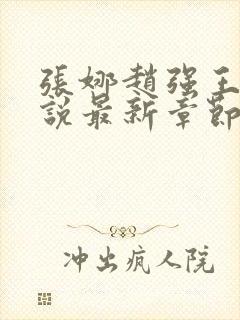 張娜趙强王
説最新章節
冲出疯人院